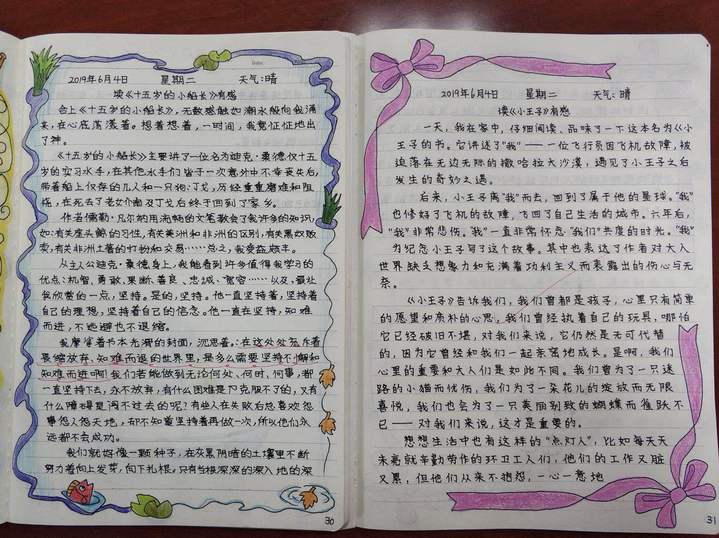 Date:
2019年6月4日 星期二 天气:晴
读《十五岁的小船长》有感
合上《十五岁的小船长》,无数感触如潮水般向我涌
来,在心底荡漾着。想着想着,一时间,我竟怔怔地出
了神。
《十五岁的小船长》主要讲了一位名为迪克·桑德仅十五
岁的实习水手,在其他水手们皆于一次意外中不幸丧失后,
带着船上仅存的几人和一只狗:丁戈,历经重重磨难和阻
挠,在死去了老奶奶南及丁戈后终于回到了家乡。
作者儒勒·凡尔纳用流畅的文笔教会了我许多的知识,
如:有关座头鲸的习性,有关美洲和非洲的区别,有关黑奴贩
卖,有关非洲土著的打扮和交易……总之,我受益颇丰。
从主人公迪克·桑德身上,我能看到许多值得我学习的
优点:机智、勇敢、果断、善良、忠诚、宽容……以及,最让
我欣赏的一点,坚持。是的,坚持。他一直坚持着,坚持着
自己的理想,坚持着自己的信念。他一直在坚持,知难
而进,不逃避也不退缩。
我摩挲着书本光滑的封面,沉思着。:在这处处充斥着
畏缩放弃、知难而退的世界里,是多么需要坚持不懈和
知难而进啊!我们若能做到无论何处、何时、何事,都
一直坚持下去,永不放弃,有什么困难是不克服不了的,又有
什么障碍是通不过去的呢!有些人在失败后总喜欢怨
事怨人怨天地,却不知要坚持着再做一次,所以他们永
远都不会成功。
我们就好像一颗种子,在灰黑阴暗的土壤里不断
努力着向上发芽,向下扎根,只有当根深深的深入地的深
30
2019年6月4日 星期二 天气:晴
读《小王子》有感
一天,我在家中,仔细阅读、品味了一下这本名为《小
王子的书。它讲述了"我"——一位飞行员因飞机故障,被
迫落在无边无际的撒哈拉大沙漠,遇见了小王子之后
发生的奇妙之遇。
后来,小王子离"我"而去,回到了属于他的星球。"我"
也修好了飞机的故障,飞回了自己生活的城市。六年后,
"我"非常悲伤。"我"一直非常怀念"我们"共度的时光。"我"
为纪念小王子写了这个故事。其中也表达了作者对大人
世界缺乏想象力和充满着功利主义而表露出的伤心与无
奈。
《小王子》告诉我们,我们曾都是孩子,心里只有简单
的愿望和亲朴的心思,我们曾经执着自己的玩具,哪怕
它已经破旧不堪,对我们来说,它仍然是无可代替
的,因为它曾经和我们一起亲密地成长。是啊,我们
心里的重要和大人们是如此不同。我们曾为了一只迷
路的小猫而忧伤,我们为了一朵花儿的绽放而无限
喜悦,我们也会为了一只美丽别致的蝴蝶而雀跃不
已——对我们来说,这才是重要的。
想想生活中也有这样的"点灯人",比如每天天
未亮就辛勤劳作的环卫工人们,他们的工作又脏
又累,但他们从来不抱怨,一心一意地
31